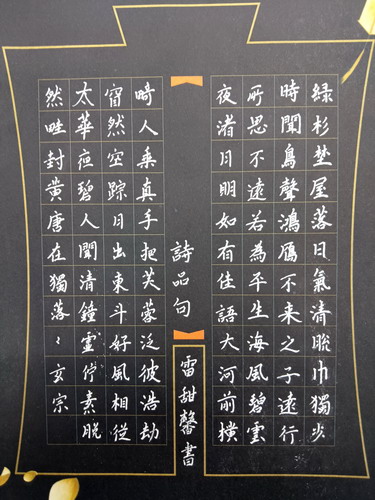 綠杉埜屋落日氣清脱巾獨步
時聞鳥聲鴻雁不來之子遠行
所思不遠若為平生海風碧雲
夜渚月明如有佳語大河前横
詩品句
畸人乘真手把芙蒙泛彼浩劫
窅然空踪月出東斗好風相從
太華亱碧人聞清鐘靈佇素脫
然畦封黃唐在獨落〻玄宗
雷甜馨書